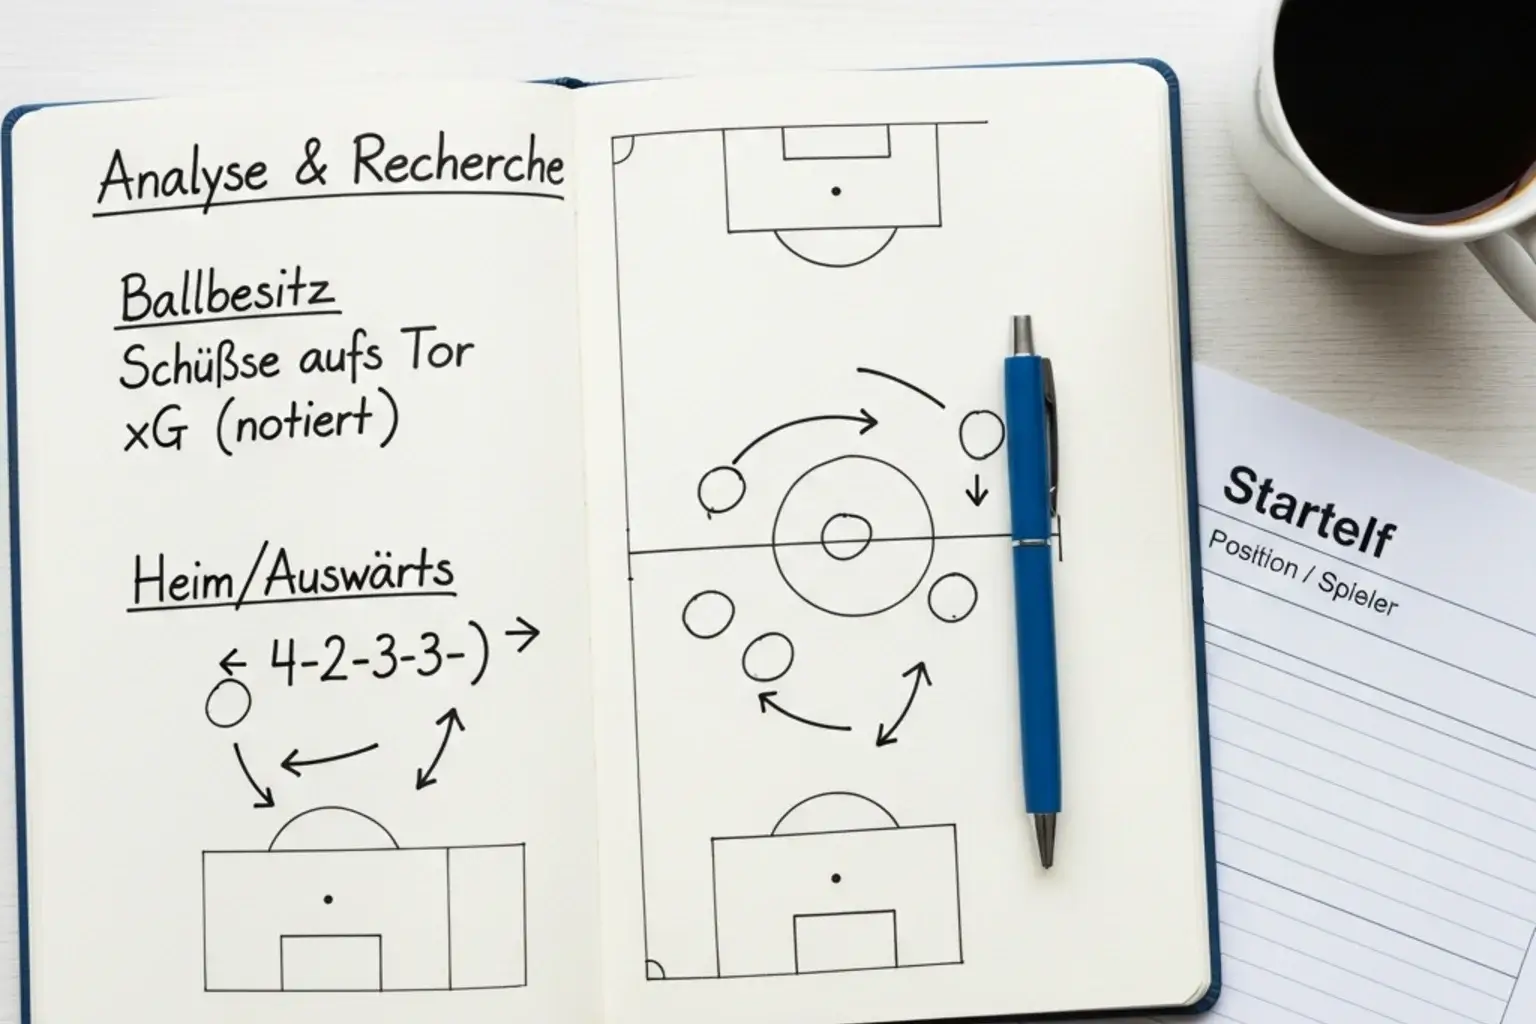 Analyse & Recherche
Ballbesitz
Schüßse aufs Tor
xG (notiert)
Heim/Auswärts
← 4-2-3-3-) →
Startelf
Position / Spieler